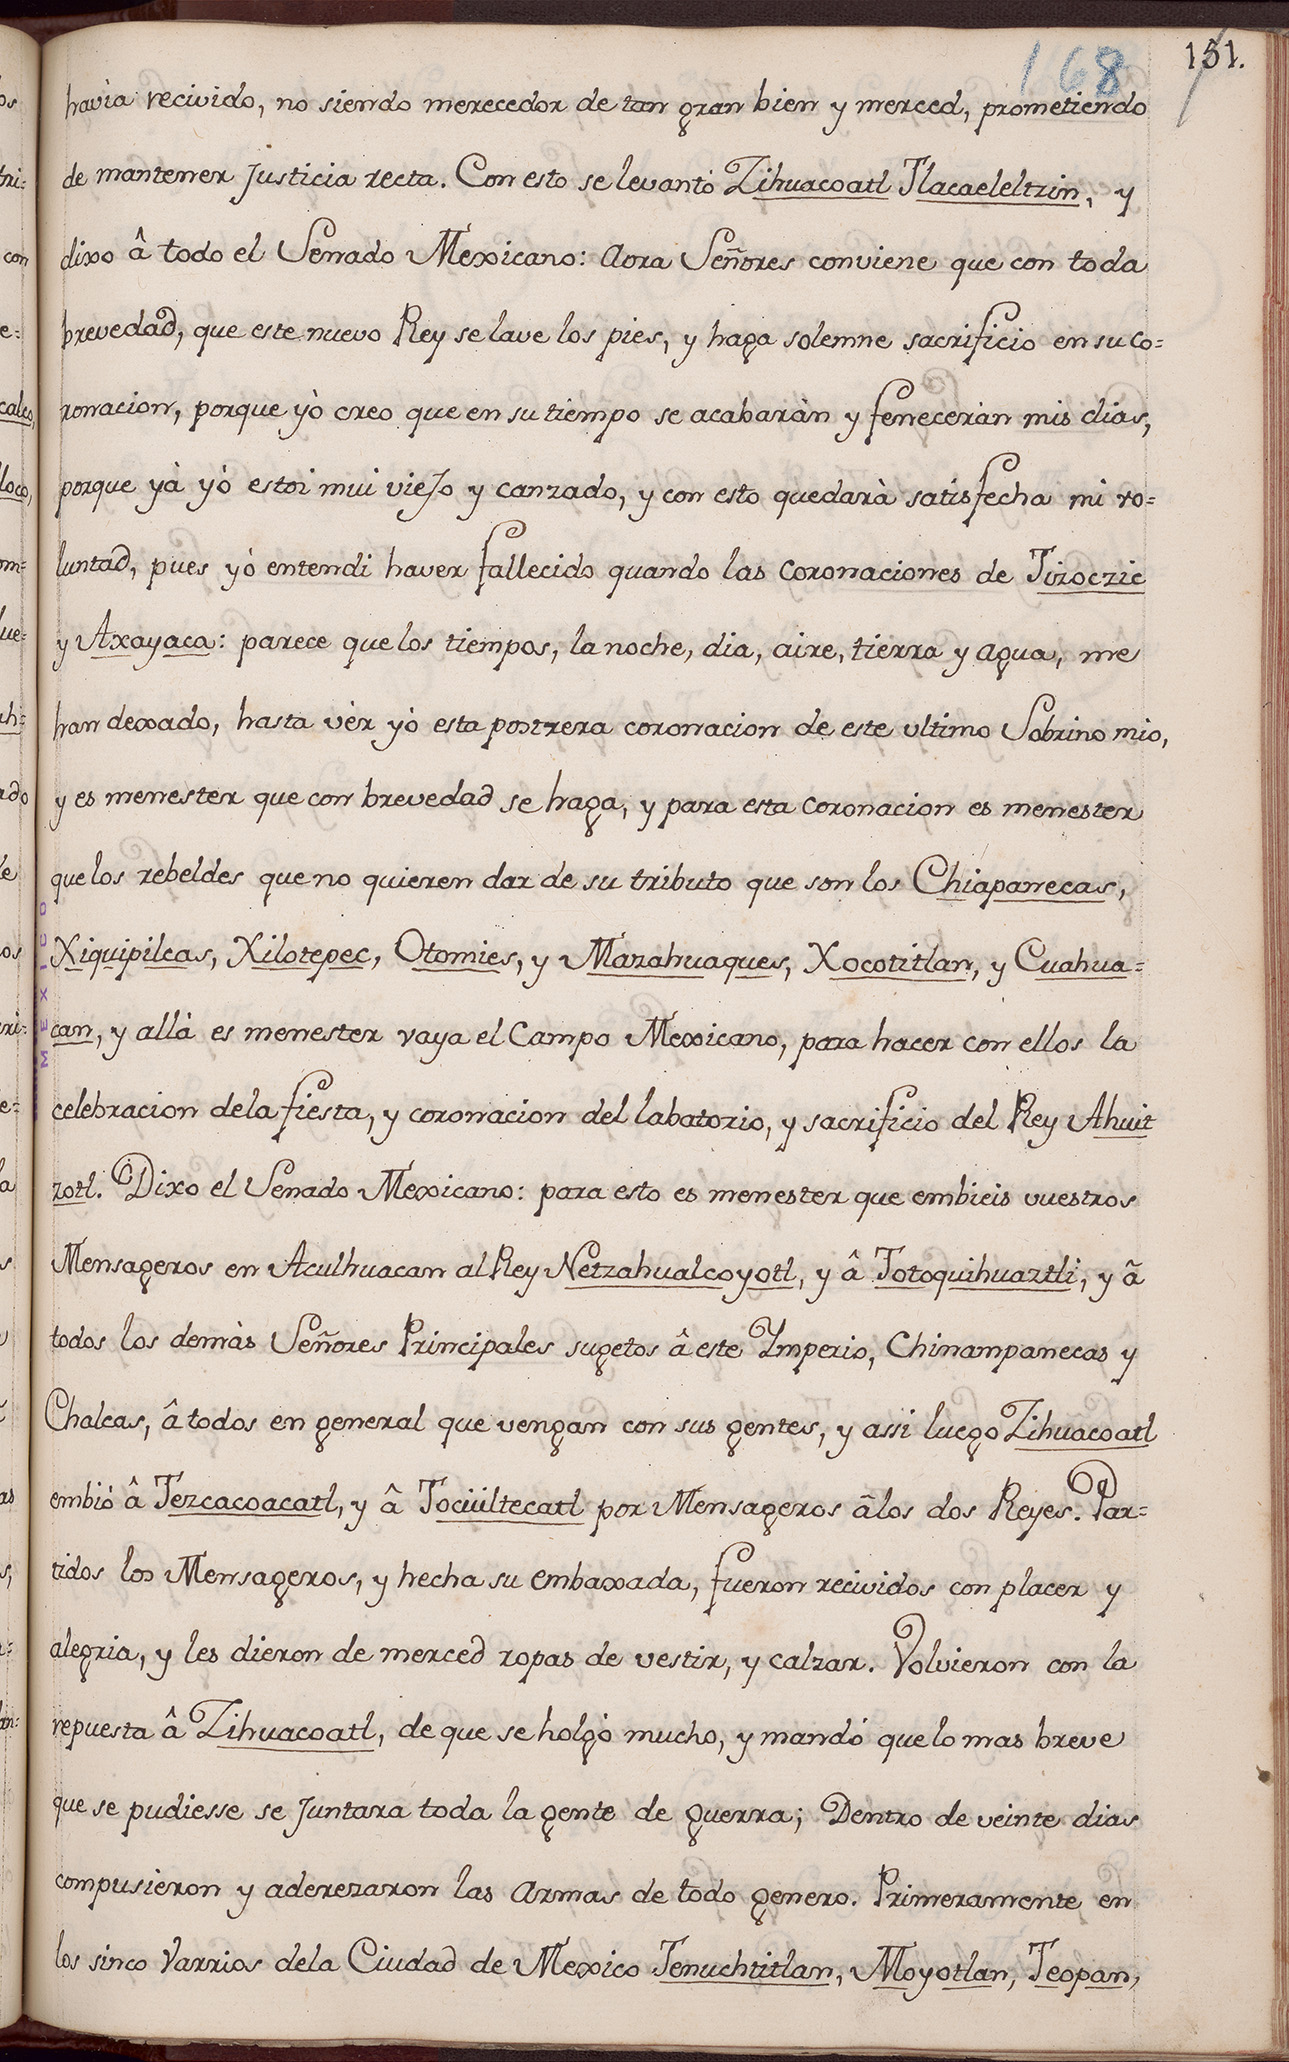 168
151.
havia recivido, no siendo merecedor de tan gran bien y merced, prometiendo
de mantener Justicia recta. Con esto se levantò Zihuacoatl Tlacaeleltzin, y
dixo â todo el Senado Mexicano: Aora Señores conviene que con toda
brevedad, que este nuevo Rey se lave los pies, y haga solemne sacrificio en su co=
ronacion, porque yò creo que en su tiempo se acabaràn y feneceràn mis dias,
porque yà yò estoi mui vieJo y canzado, y con esto quedarà satisfecha mi vo=
luntad, pues yò entendi haver fallecido quando las coronaciones de Tizoczic
y Axayaca: parece que los tiempos, la noche, dia, aire, tierra y agua, me
han dexado, hasta vèr yò esta postrera coronacion de este ultimo Sobrino mio,
y es menester que con brevedad se haga, y para esta coronacion es menester
que los rebeldes que no quieren dar de su tributo que son los Chiapanecas,
Xiquipilcas, Xilotepec, Otomies, y Mazahuaques, Xocotitlan, y Cuahua=
can, y allà es menester vaya el Campo Mexicano, para hacer con ellos la
celebracion dela fiesta, y coronacion del labatorio, y sacrificio del Rey Ahuit
zotl. Dixo el Senado Mexicano: para esto es menester que embieis vuestros
Mensageros en Aculhuacan al Rey Netzahualcoyotl, y â Totoquihuaztli, y â
todos los demàs Señores Principales sugetos â este Ymperio, Chinampanecas y
Chalcas, â todos en general que vengan con sus gentes, y assi luego Zihuacoatl
embiò â Tezcacoacatl, y â Tocüiltecatl por Mensageros âlos dos Reyes. Par=
tidos los Mensageros, y hecha su embaxada, fueron recividos con placer y
alegria, y les dieron de merced ropas de vestir, y calzar. Volvieron con la
repuesta â Zihuacoatl, de que se holgò mucho, y mandò que lo mas breve
que se pudiesse se Juntara toda la gente de guerra; Dentro de veinte dias
compusieron y aderezaron las Armas de todo genero. Primeramente en
los sinco Varrios dela Ciudad de Mexico Tenuchtitlan, Moyotlan, Teopan,
MEXICO